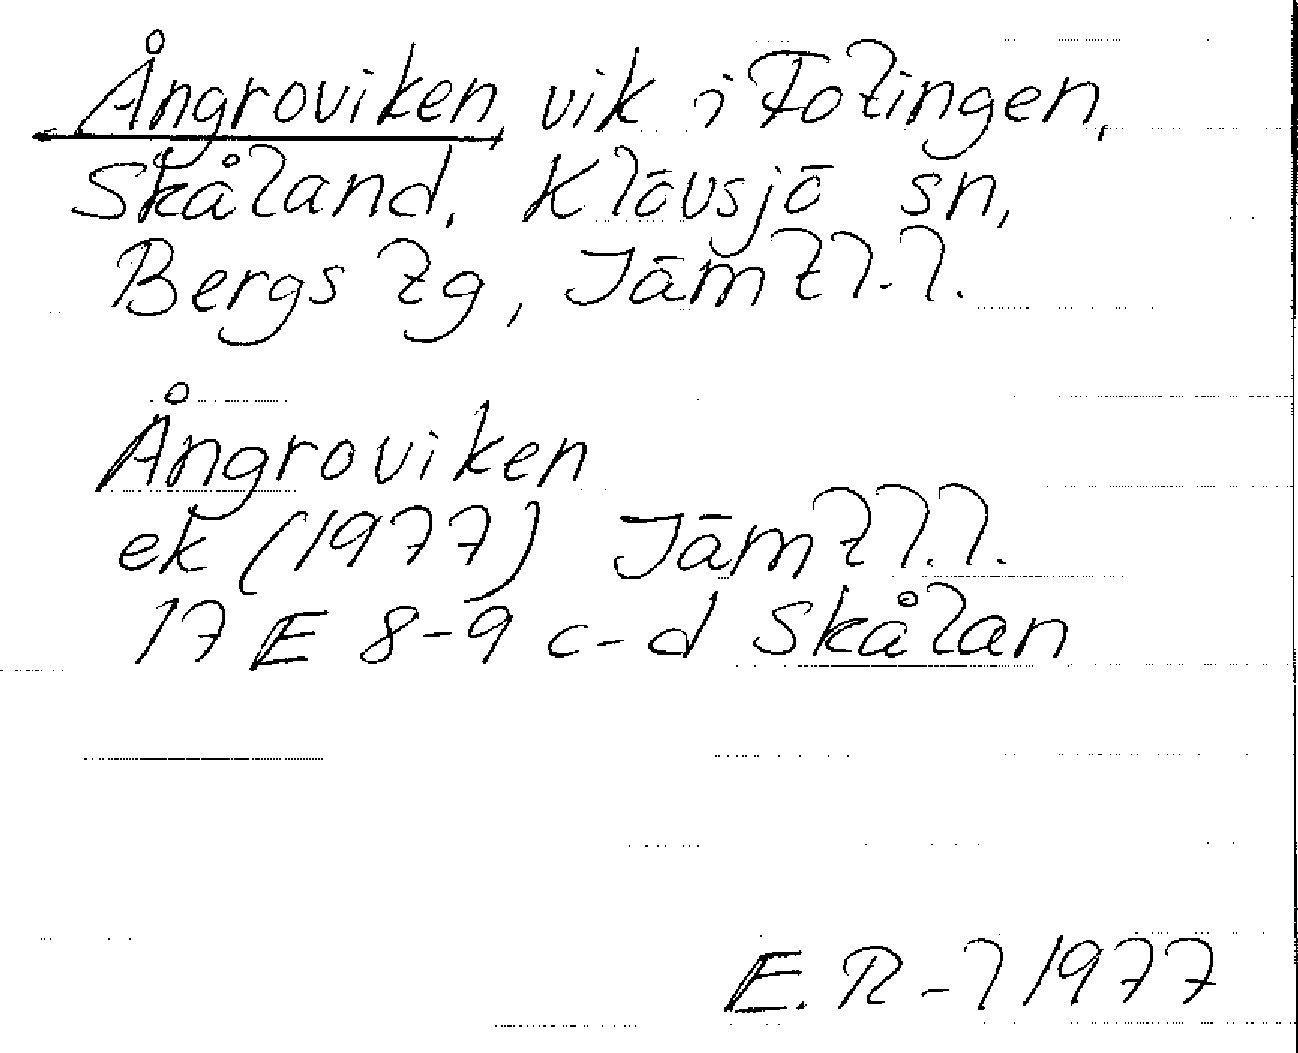 Ångroviken, vik i Fotingen,
Skåland, Klövsjö sn,
Bergs tg, Jämtl.l.
Ångroviken
ek (1977) Jämtl.l.
17 E 8-9 c-d Skålan
E.R-l 1977